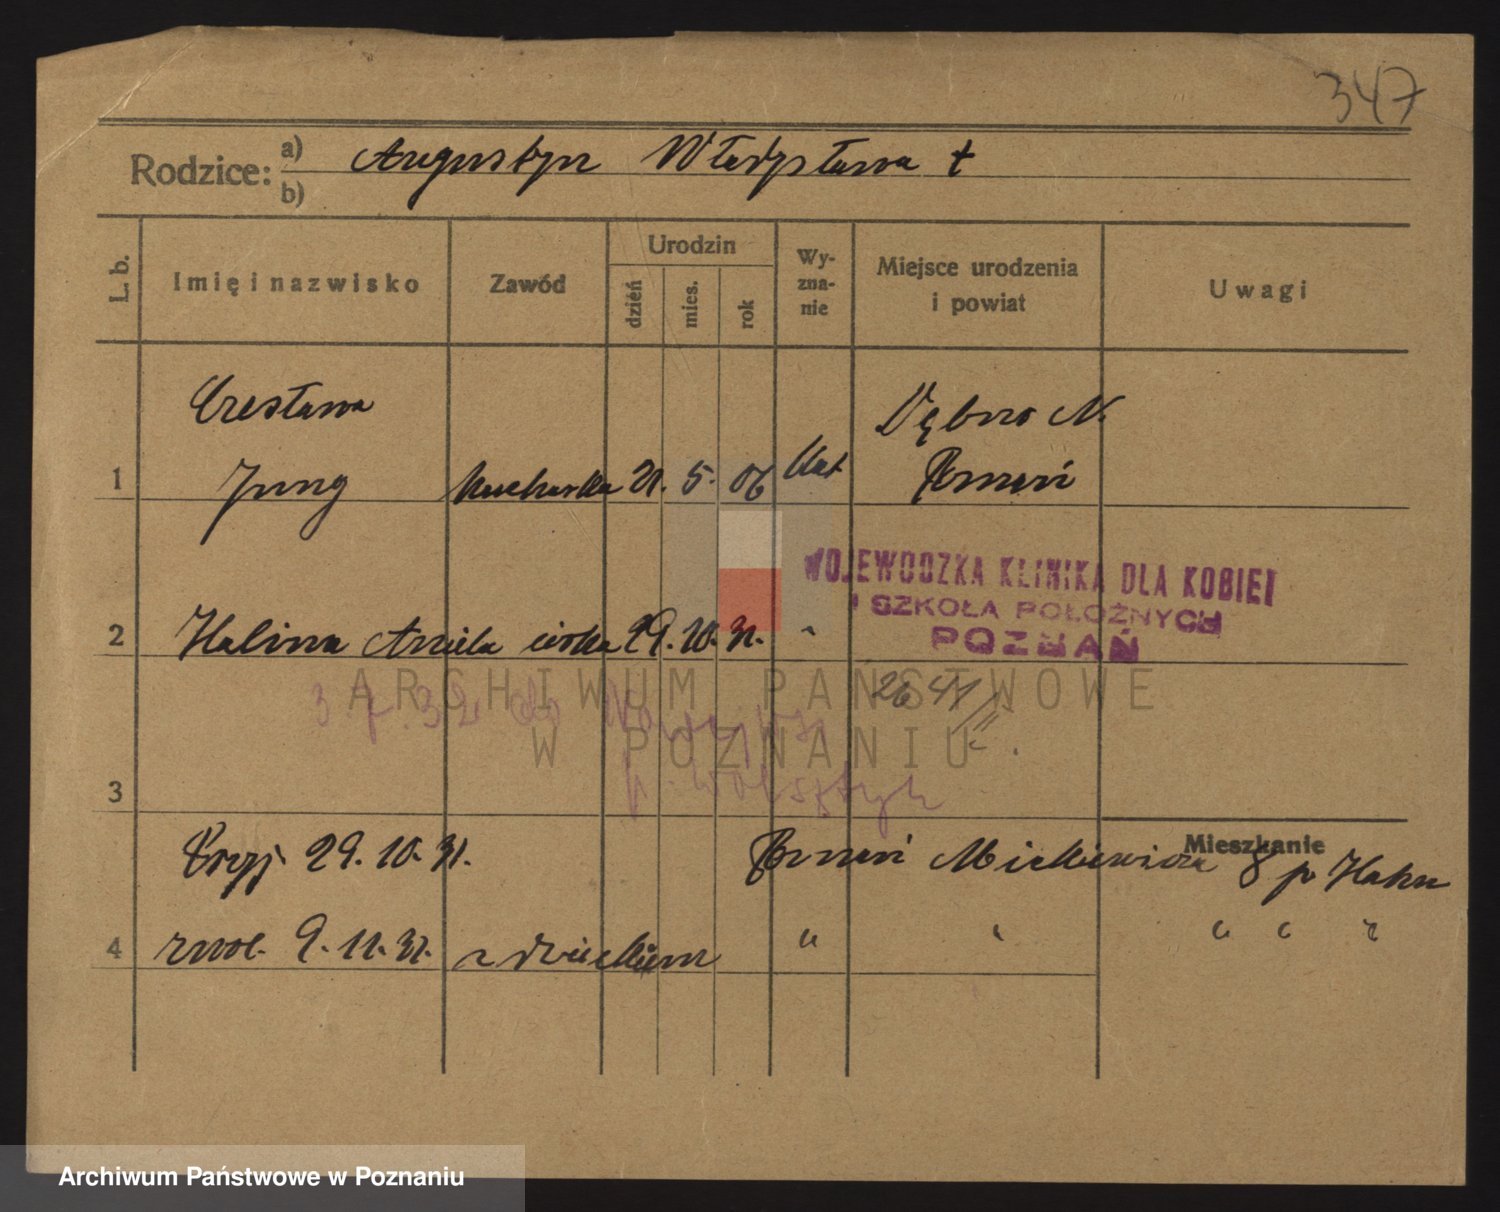 347
Rodzice: a) Augustyn Władysława †
b)
L. b.
Imię i nazwisko
Zawód
Urodzin
dzień
mies.
rok
Wy-
zna-
nie
Miejsce urodzenia
i powiat
Uwagi
Czesława
Dębno N.
1 Jung kucharka 21. 5. 06 kat
Poznań
WOJEWÓDZKA KLINIKA DLA KOBIET
I SZKOŁA POŁOŻNYCH
POZNAŃ
2 Halina Aniela córka 29. 10. 31. "
ARCHIWUM PAŃSTWOWE
W POZNANIU
26 41/II.
3. 7. 32 do
p. Wolsztyn
3
Mieszkanie
Przyj. 29. 10. 31. Poznań Mickiewicza 8 p Hahn
4 zwol. 9. 11. 31. z dzieckiem " " " " "
Archiwum Państwowe w Poznaniu